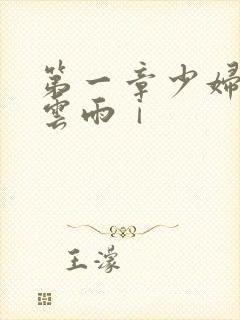 第一章少婦
雲雨｜
王濛